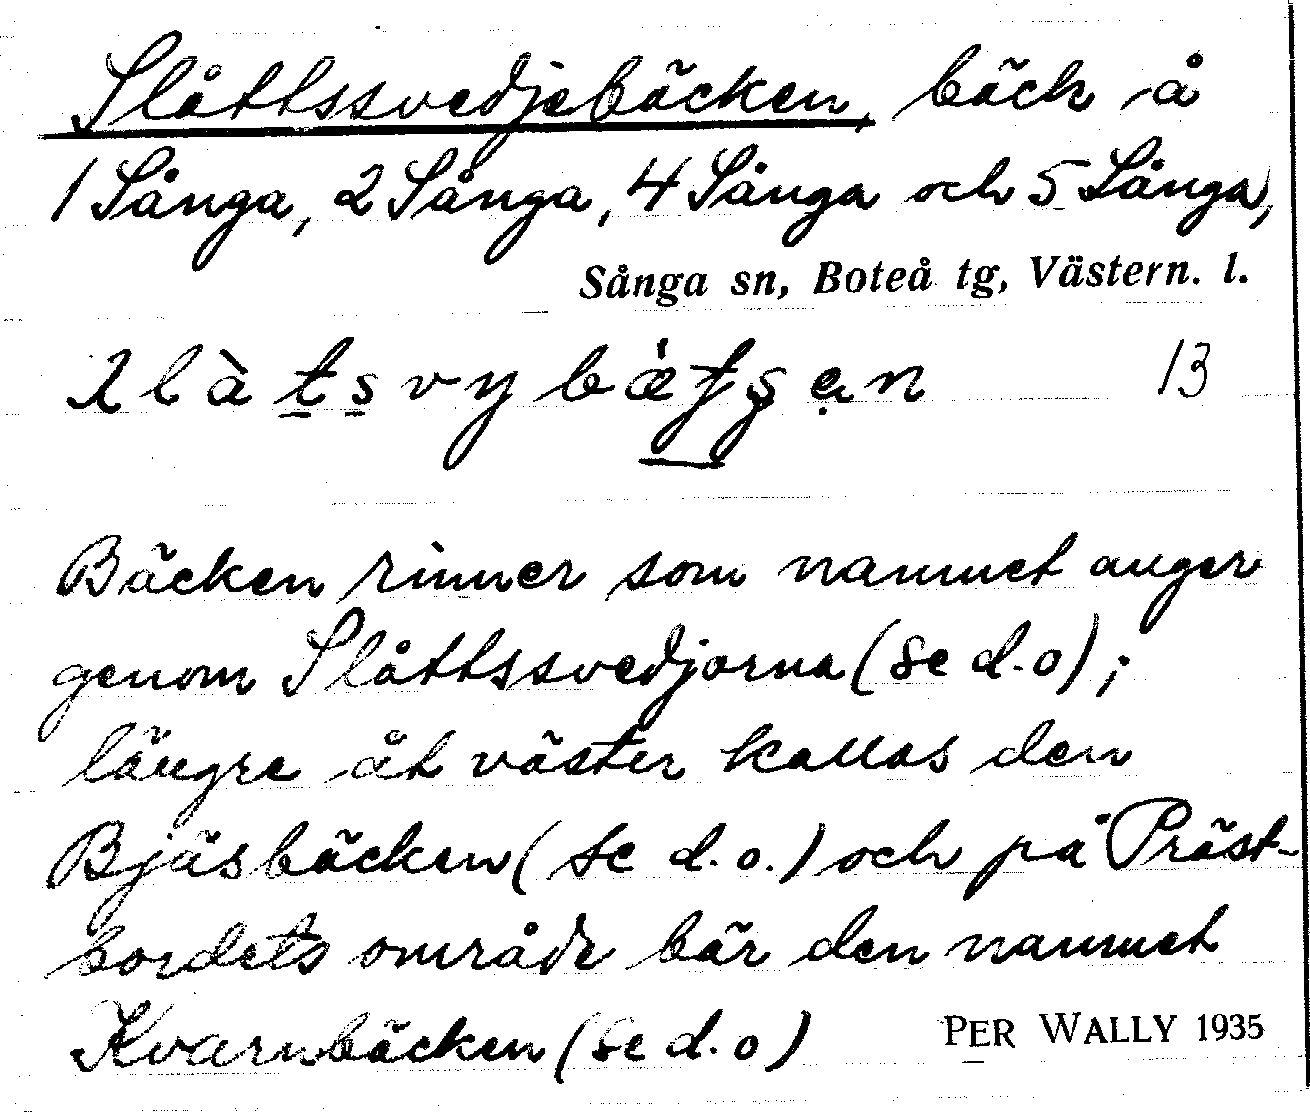 Slåttssvedjebäcken, bäck å
1 Sånga, 2 Sånga, 4 Sånga och 5 Sånga,
Sånga sn, Boteå tg, Västern. l.
13
Bäcken rinner som namnet anger
genom Slåttssvedjorna (se d.o);
längre åt väster kallas den
Bjäsbäcken (se d.o.) och på Präst-
bordets område bär den namnet
Kvarnbäcken (se d.o)
PER WALLY 1935